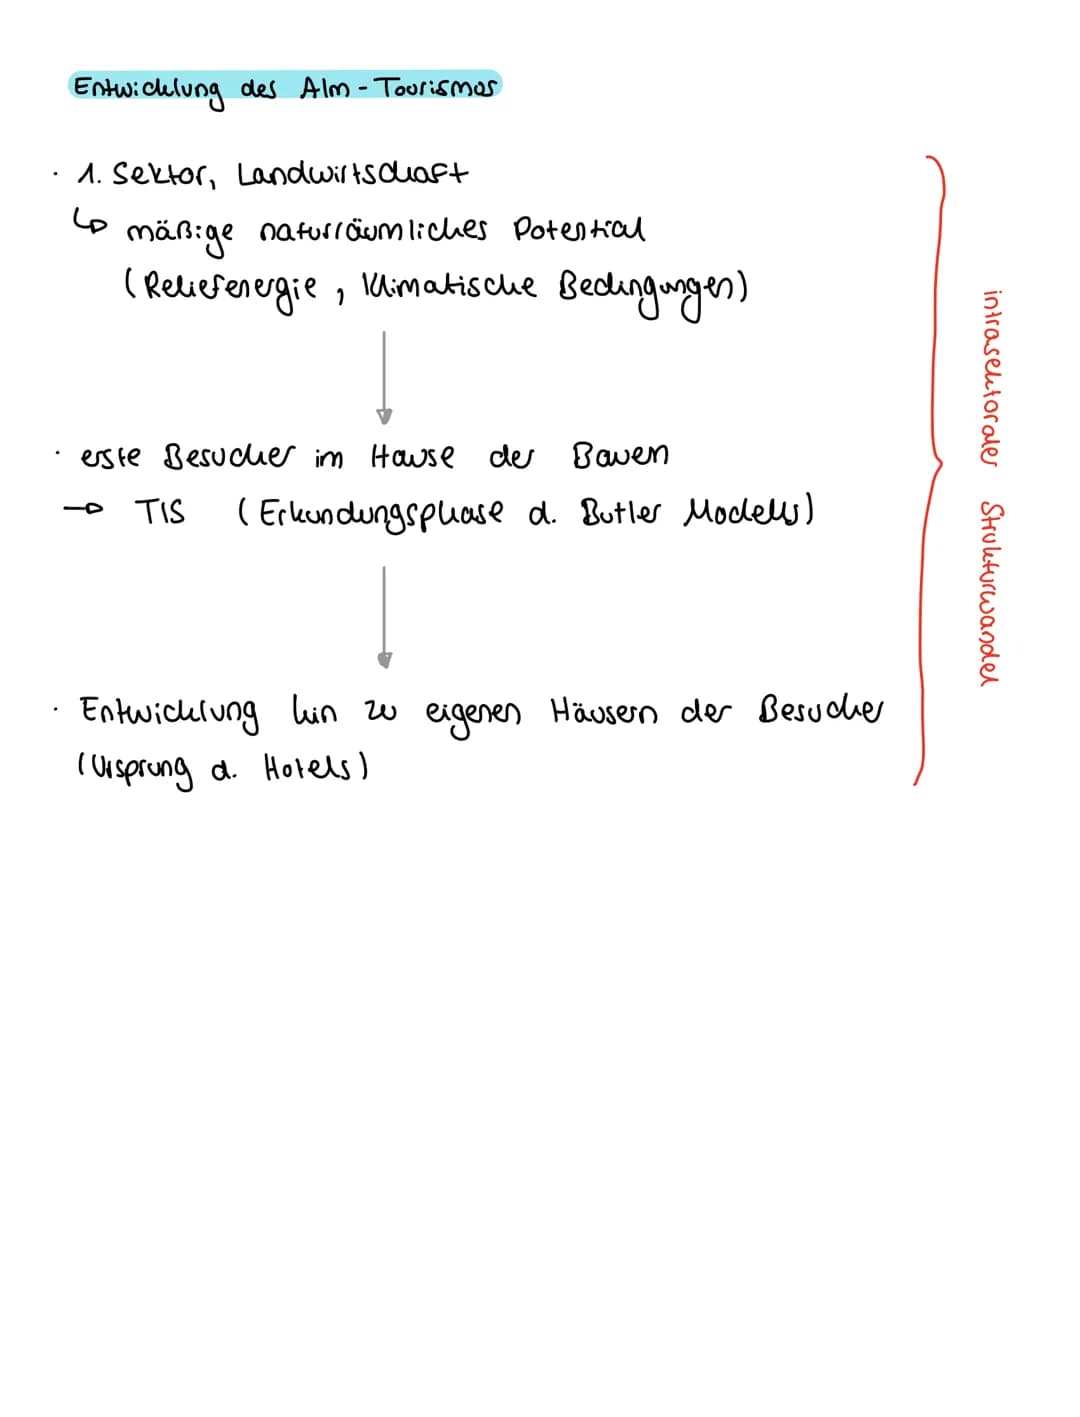 Entwicklung des Alm-Tourismus
· 1. Sektor, Landwirtschaft
↳ mäßige naturräumliches Potential
(Reliefenergie, klimatische Bedingungen)
· erste Besucher im Hause der Bauern
→ TIS (Erkundungsphase d. Butler Modells)
· Entwicklung hin zu eigenen Häusern der Besucher
(Ursprung d. Hotels)
intrasektoraler Strukturwandel